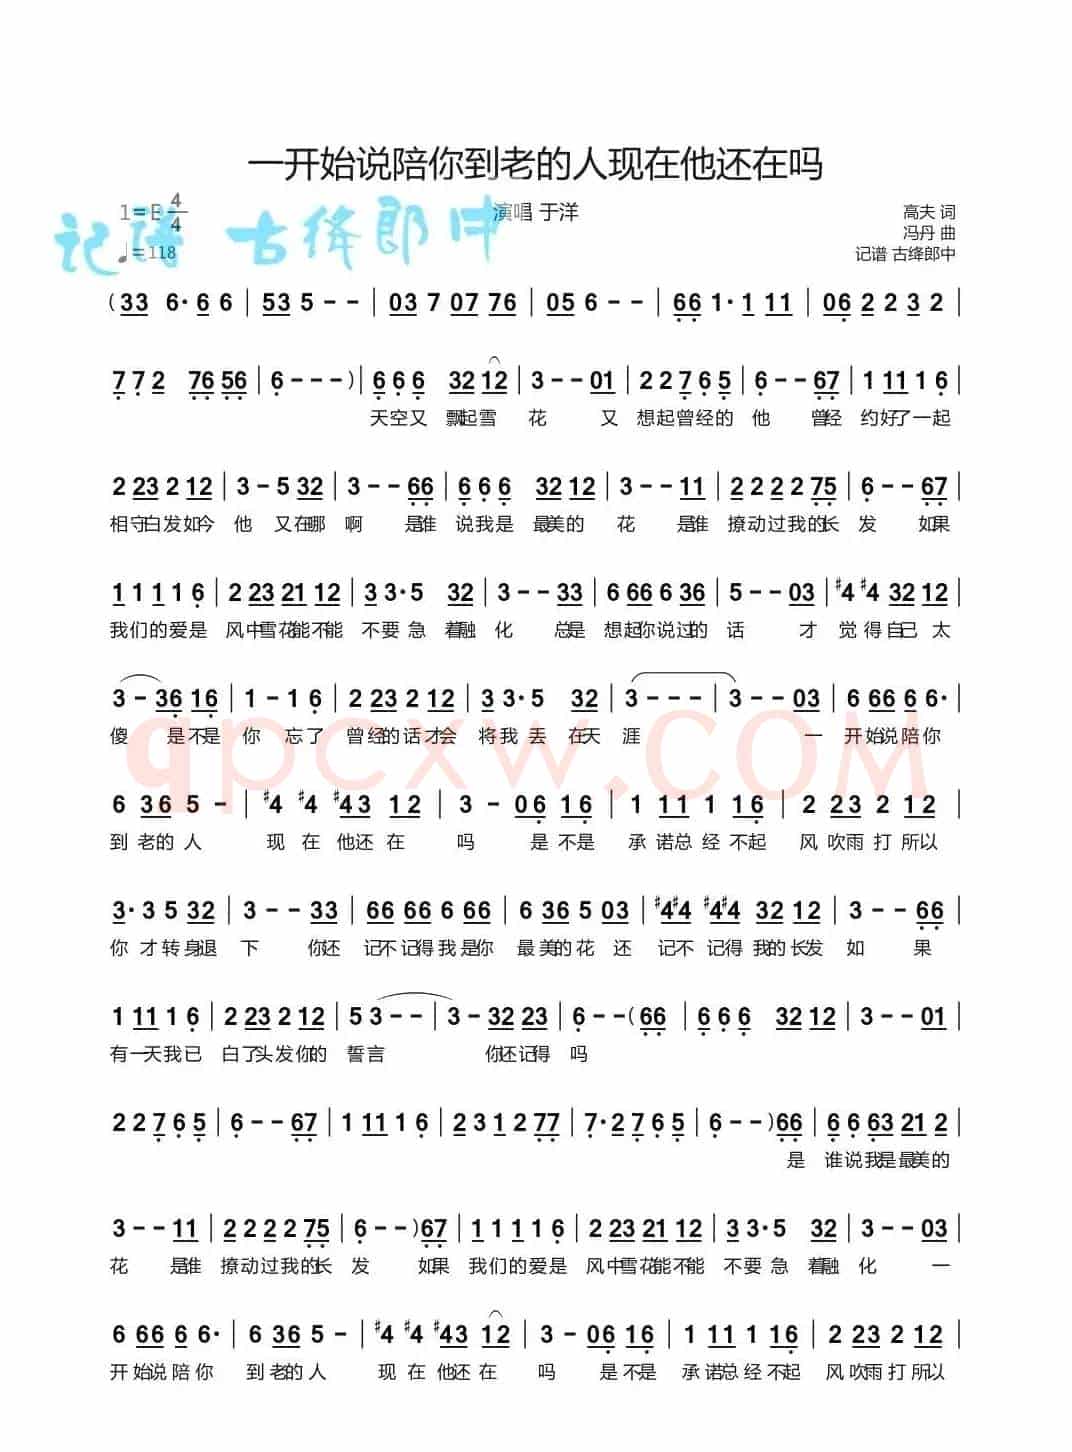 一开始说陪你到老的人现在他还在吗
1=E 4/4 演唱 于洋 高夫 词
冯丹 曲
♩=118 记谱 古绛郎中
记谱 古绛郎中
(33 6·66 | 535-- | 03 7 07 76 | 056-- | 661·111 | 062232 |
772 7656 | 6---) | 666 3212 | 3--01 | 22765 | 6--67 | 11116 |
天空又 飘起雪 花 又 想起曾经的 他 曾经 约好了一起
223212 | 3-532 | 3--66 | 666 3212 | 3--11 | 222275 | 6--67 |
相守白发如今 他 又在哪 啊 是谁 说我是 最美的 花 是谁 撩动过我的长 发 如果
11116 | 2232112 | 33·5 32 | 3--33 | 666636 | 5--03 | #4 #4 3212 |
我们的爱是 风中雪花能不能 不要急 着融 化 总是 想起你说过的 话 才 觉得自己 太
3-3616 | 1-16 | 223212 | 33·5 32 | 3--- | 3--03 | 66666· |
傻 是不是 你 忘了 曾经的话才会 将我丢 在天 涯 一 开始说陪你
6 36 5 - | #4 #4 #43 12 | 3 - 06 16 | 1 11 1 16 | 2 23 2 12 |
到 老的 人 现 在 他还 在 吗 是 不是 承 诺总 经 不起 风 吹雨 打 所以
3·3532 | 3--33 | 6666666 | 636503 | #4#4 #4#4 32 12 | 3--66 |
你 才转身退 下 你还 记不记得我是你 最美的花 还 记不 记得 我的长发 如 果
11116 | 223212 | 53-- | 3-3223 | 6--(66 | 666 3212 | 3--01 |
有一天我已 白了头发你的 誓言 你还记得 吗
22765 | 6--67 | 11116 | 231277 | 7·2765 | 6--)66 | 6663212 |
是 谁说我是最美的
3--11 | 222275 | 6--)67 | 11116 | 2232112 | 33·5 32 | 3--03 |
花 是谁 撩动过我的长 发 如果 我们的爱是 风中雪花能不能 不要急 着融 化 一
66666· | 6365- | #4 #4 #43 12 | 3-0616 | 111116 | 223212 |
开始说陪你 到老的人 现 在 他还 在 吗 是不是 承诺总经不起 风吹雨打 所以
qpcxw.COM